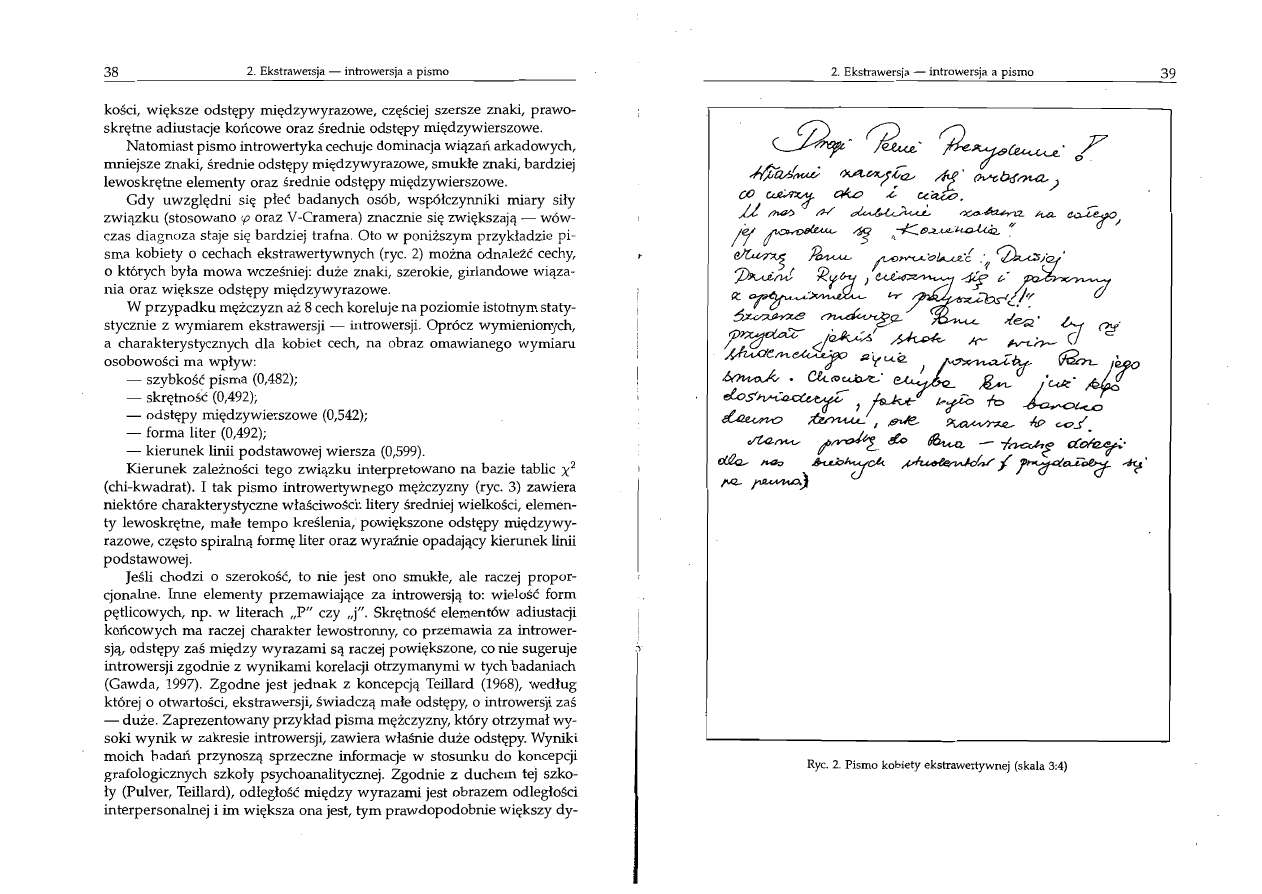 38
2. Ekstrawersja — introwersja a pismo
kości, większe odstępy międzywyrazowe, częściej szersze znaki, prawo-
skrętne adiustacje końcowe oraz średnie odstępy międzywierszowe.
Natomiast pismo introwertyka cechuje dominacja wiązań arkadowych,
mniejsze znaki, średnie odstępy międzywyrazowe, smukłe znaki, bardziej
lewoskrętne elementy oraz średnie odstępy międzywierszowe.
Gdy uwzględni się płeć badanych osób, współczynniki miary siły
związku (stosowano φ oraz V-Cramera) znacznie się zwiększają — wów-
czas diagnoza staje się bardziej trafna. Oto w poniższym przykładzie pi-
sma kobiety o cechach ekstrawertywnych (ryc. 2) można odnaleźć cechy,
o których była mowa wcześniej: duże znaki, szerokie, girlandowe wiąza-
nia oraz większe odstępy międzywyrazowe.
W przypadku mężczyzn aż 8 cech koreluje na poziomie istotnym staty-
stycznie z wymiarem ekstrawersji — introwersji. Oprócz wymienionych,
a charakterystycznych dla kobiet cech, na obraz omawianego wymiaru
osobowości ma wpływ:
— szybkość pisma (0,482);
— skrętność (0,492);
— odstępy międzywierszowe (0,542);
— forma liter (0,492);
— kierunek linii podstawowej wiersza (0,599).
Kierunek zależności tego związku interpretowano na bazie tablic χ²
(chi-kwadrat). I tak pismo introwertywnego mężczyzny (ryc. 3) zawiera
niektóre charakterystyczne właściwości: litery średniej wielkości, elemen-
ty lewoskrętne, małe tempo kreślenia, powiększone odstępy międzywy-
razowe, często spiralną formę liter oraz wyraźnie opadający kierunek linii
podstawowej.
Jeśli chodzi o szerokość, to nie jest ono smukłe, ale raczej propor-
cjonalne. Inne elementy przemawiające za introwersją to: wielość form
pętlicowych, np. w literach „P" czy „j". Skrętność elementów adiustacji
końcowych ma raczej charakter lewostronny, co przemawia za intrower-
sją, odstępy zaś między wyrazami są raczej powiększone, co nie sugeruje
introwersji zgodnie z wynikami korelacji otrzymanymi w tych badaniach
(Gawda, 1997). Zgodne jest jednak z koncepcją Teillard (1968), według
której o otwartości, ekstrawersji, świadczą małe odstępy, o introwersji zaś
— duże. Zaprezentowany przykład pisma mężczyzny, który otrzymał wy-
soki wynik w zakresie introwersji, zawiera właśnie duże odstępy. Wyniki
moich badań przynoszą sprzeczne informacje w stosunku do koncepcji
grafologicznych szkoły psychoanalitycznej. Zgodnie z duchem tej szko-
ły (Pulver, Teillard), odległość między wyrazami jest obrazem odległości
interpersonalnej i im większa ona jest, tym prawdopodobnie większy dy-
2. Ekstrawersja — introwersja a pismo
39
Drogi Panie Prezydencie !
Właśnie zaczęła się wiosna,
co cieszy oko i ciało.
U nas w Lublinie zabawa na całego,
jej powodem są „Kozienalia"
Muszę Panu powiedzieć : „Dzisiaj
Dzień Ryby, cieszmy się i patrzmy
z optymizmem w przyszłość!"
Szczerze mówiąc Panu też by się
przydał jakiś skok w wir
studenckiego życia, poznałby Pan jego
smak. Chociaż chyba Pan już tego
doświadczył, fakt było to bardzo
dawno temu, ale zawsze to coś.
Mam prośbę do Pana – trochę dotacji
dla nas biednych studentów ( przydałoby się
na pewno)
Ryc. 2. Pismo kobiety ekstrawertywnej (skala 3:4)